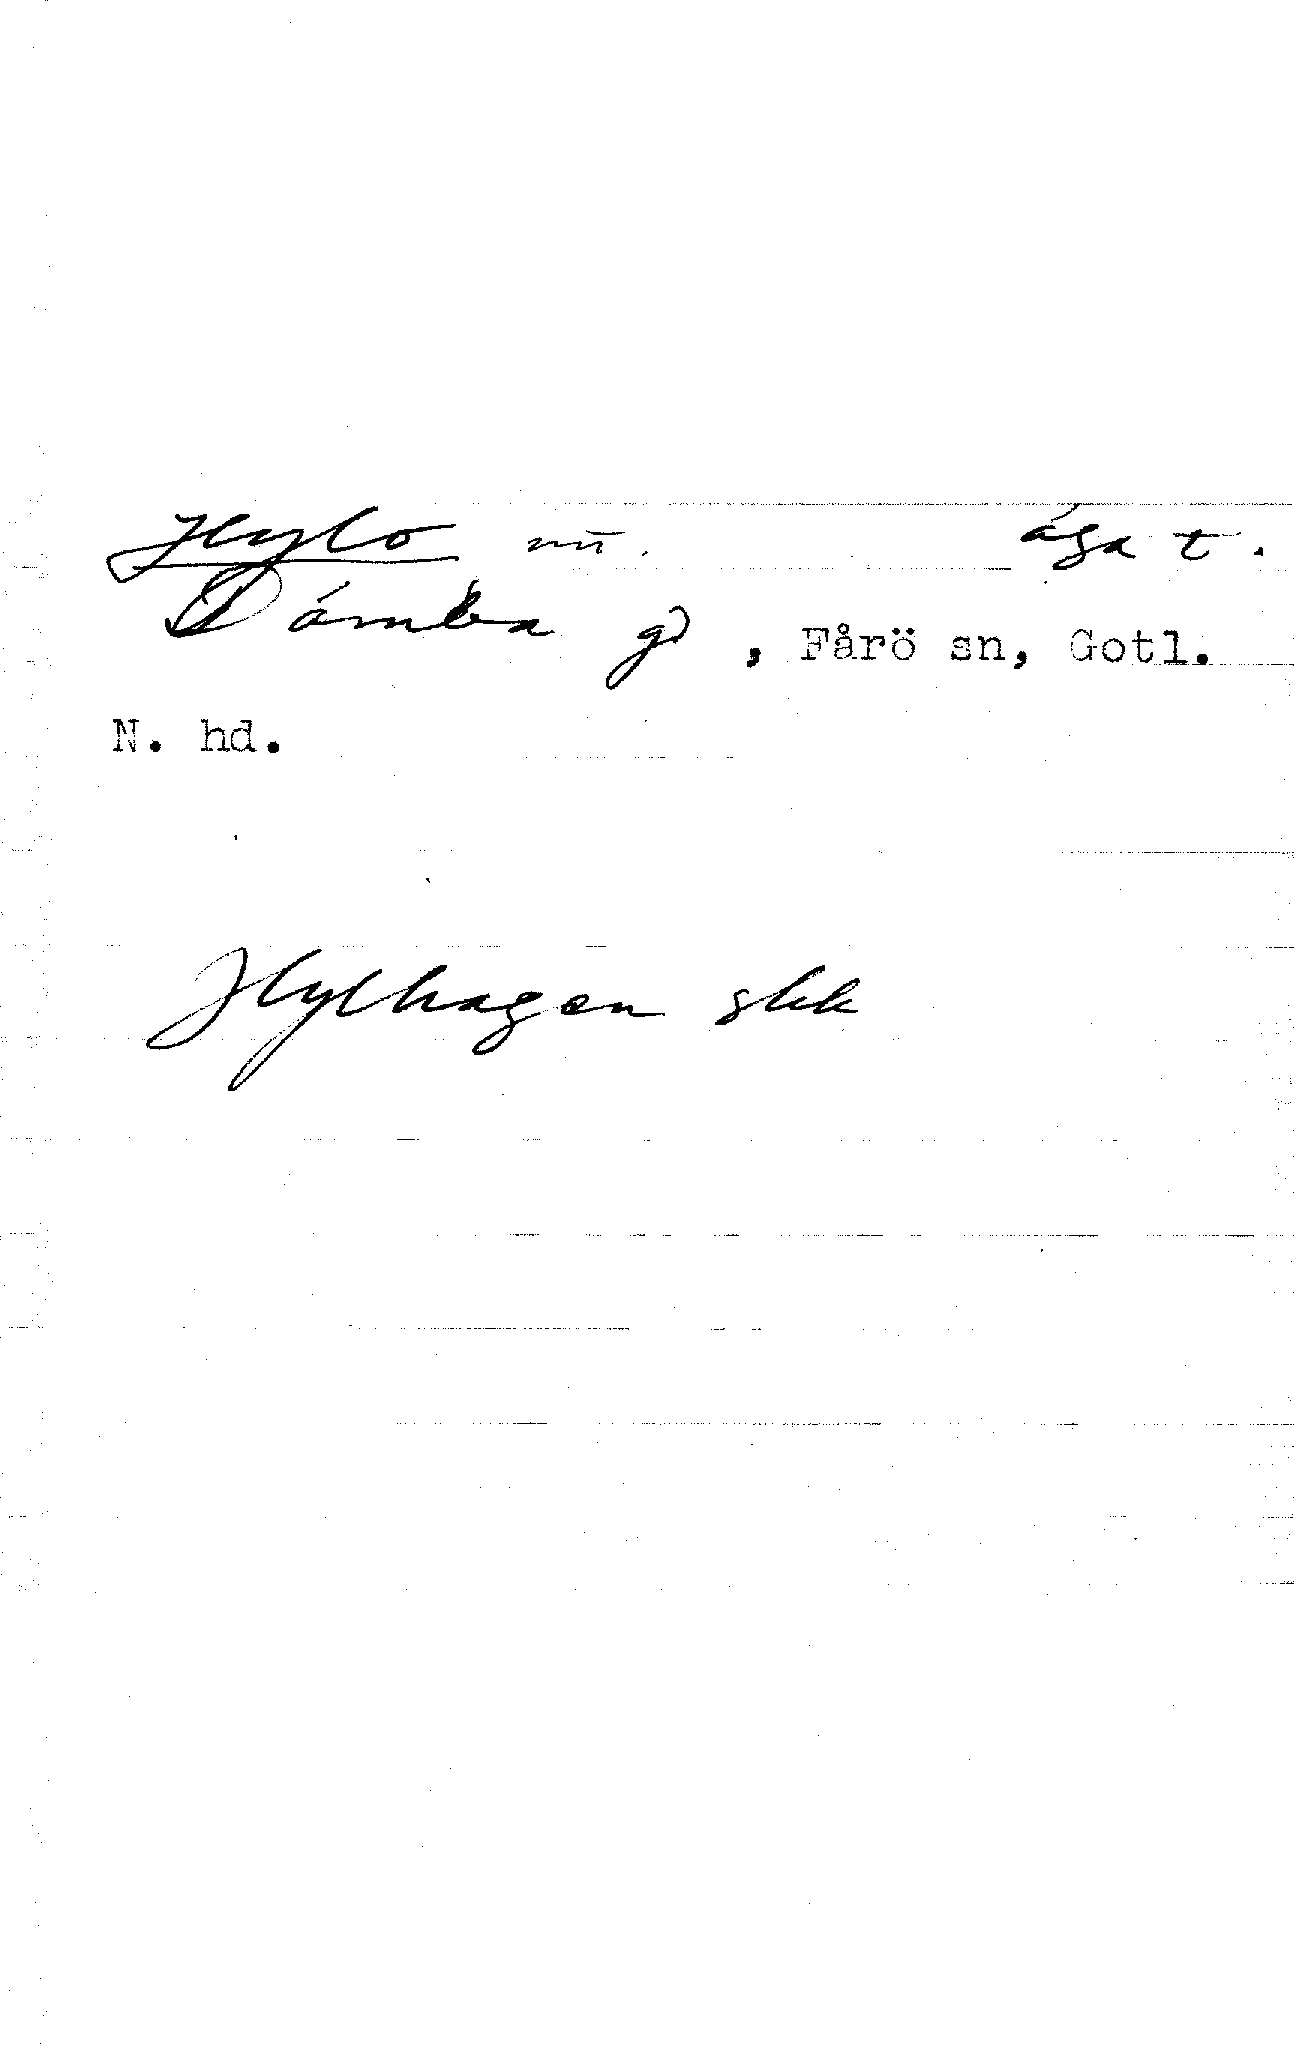 Hylo äga t.
Dämba gd, Fårö sn, Gotl.
N. hd.
Hylhagen skk